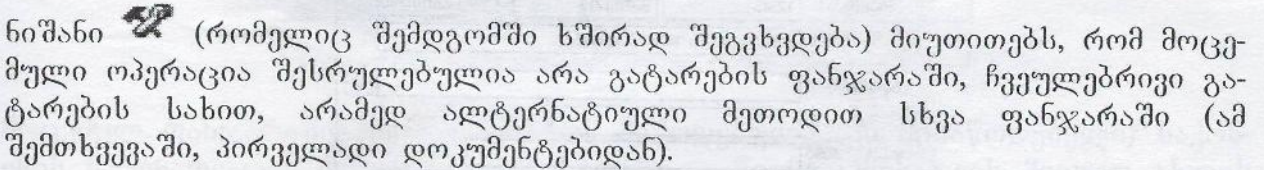 ნიშანი (რომელიც შემდგომში ხშირად შეგვხვდება) მიუთითებს, რომ მოცე-
მული ოპერაცია შესრულებულია არა გატარების ფანჯარაში, ჩვეულებრივი გა-
ტარების სახით, არამედ ალტერნატიული მეთოდით სხვა ფანჯარაში (ამ
შემთხვევაში, პირველადი დოკუმენტებიდან).